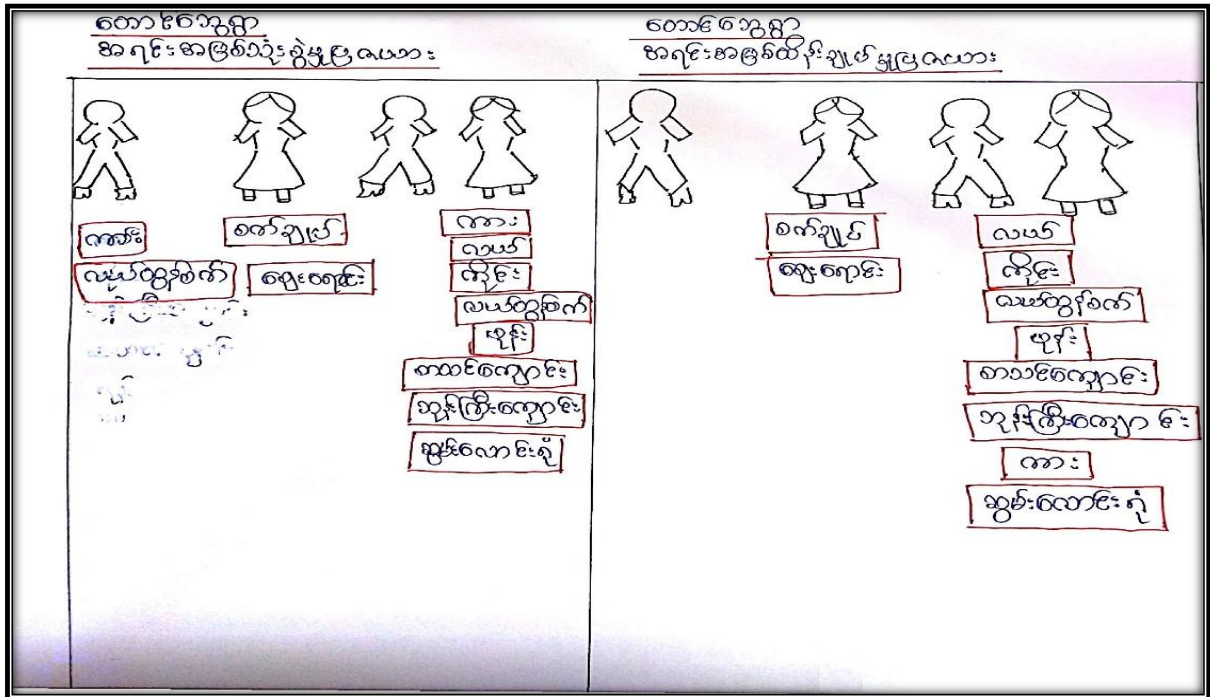 တောင်ဘွေရွာ
အရင်းအမြစ်သုံးစွဲမှုပြဇယား
ကား
လယ်ထွန်စက်
စက်ချုပ်
ဈေးရောင်း
ကား
လယ်
ကိုင်း
လယ်ထွန်စက်
ဖုန်း
စာသင်ကျောင်း
ဘုန်းကြီးကျောင်း
ဆွမ်းလောင်းရုံ
တောင်ဘွေရွာ
အရင်းအမြစ်ထိန်းချုပ်မှုပြဇယား
စက်ချုပ်
ဈေးရောင်း
လယ်
ကိုင်း
လယ်ထွန်စက်
ဖုန်း
စာသင်ကျောင်း
ဘုန်းကြီးကျောင်း
ကား
ဆွမ်းလောင်းရုံ